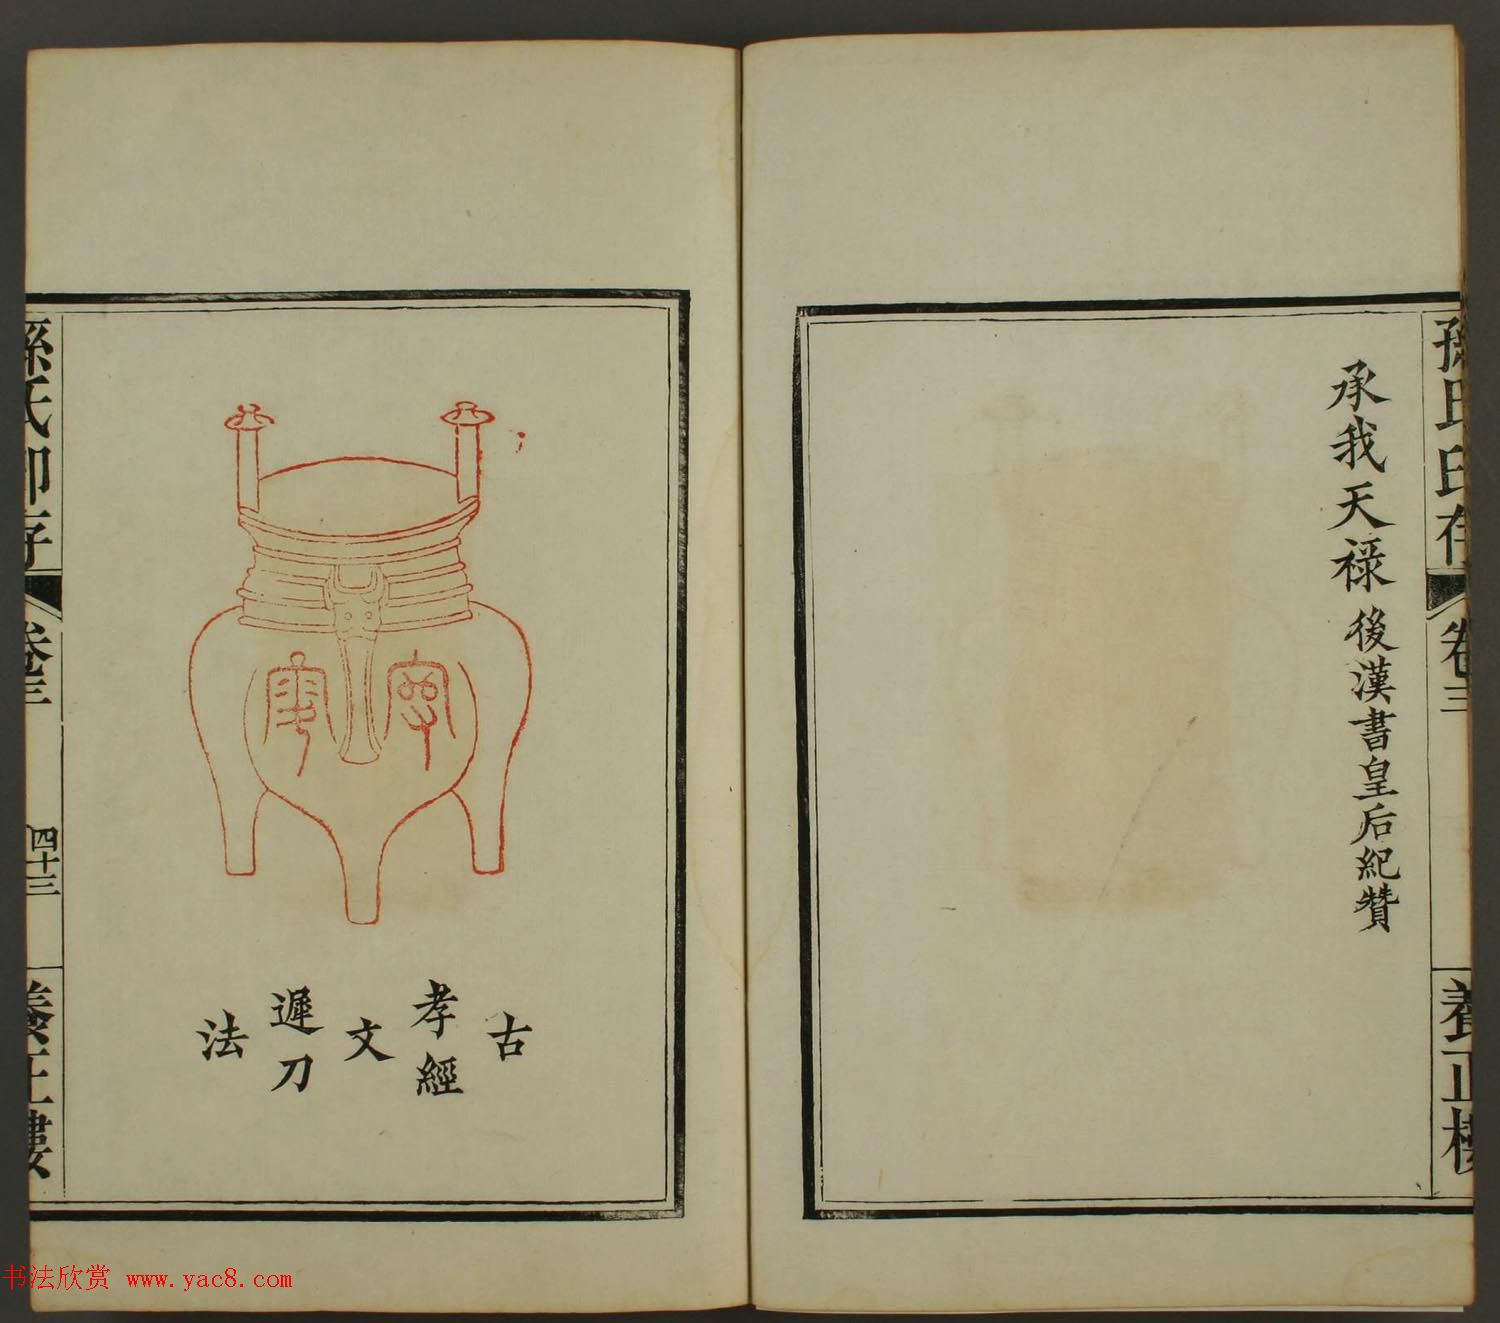 孫氏印存
卷三
養正樓
承我天禄 後漢書皇后紀贊
古
孝經
文
遲刀
法
孫氏印存
卷三
四十三
養正樓
书法欣赏 www.yac8.com